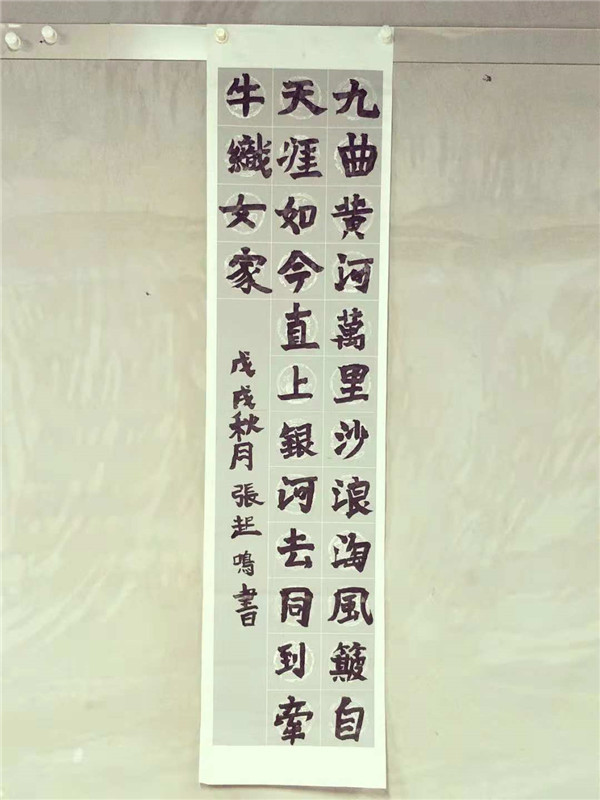 九曲黄河萬里沙浪淘風簸自
天涯如今直上銀河去同到牽
牛織女家
戊戌秋月張起鳴書